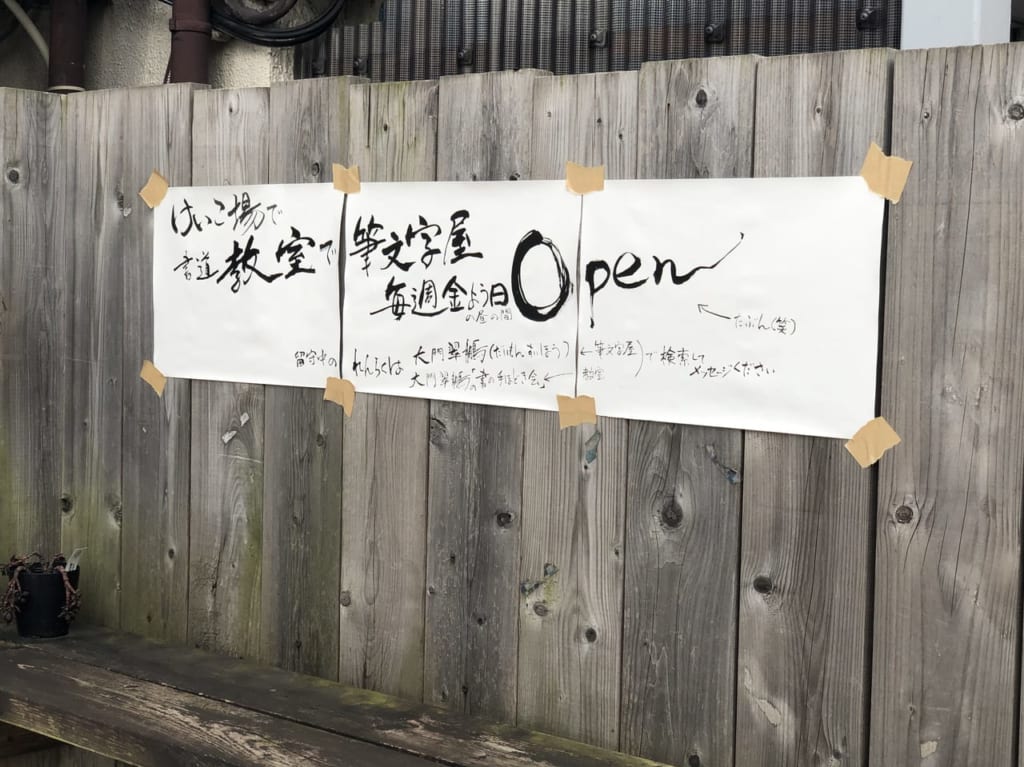 けいこ場で
書道教室で
筆文字屋
毎週金よう日
の昼の間
Open
←たぶん(笑)
留守中のれんらくは
大門翠(だいもんすいほう)←筆文字屋
大門翠「書の手ほどき会」←教室
で検索して
メッセージください